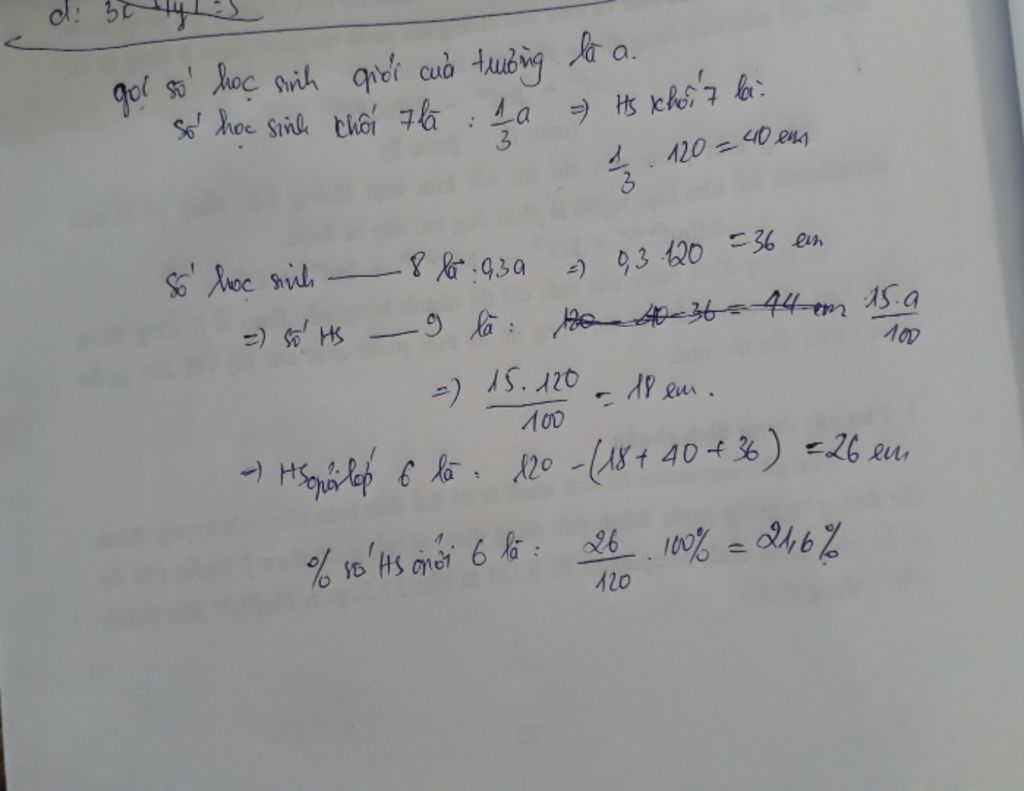 d: 3x
gọi số học sinh giỏi của trường là a.
số học sinh khối 7 là : 1/3 a => HS khối 7 là:
1/3 . 120 = 40 em
số học sinh —— 8 là : 0,3a => 0,3 . 120 = 36 em
=> số HS —— 9 là : 120 - 40 - 36 = 44 em 15.a/100
=> 15.120/100 = 18 em.
=> HS giỏi lớp 6 là : 120 - (18 + 40 + 36) = 26 em
% số HS giỏi 6 là : 26/120 . 100% = 21,6%